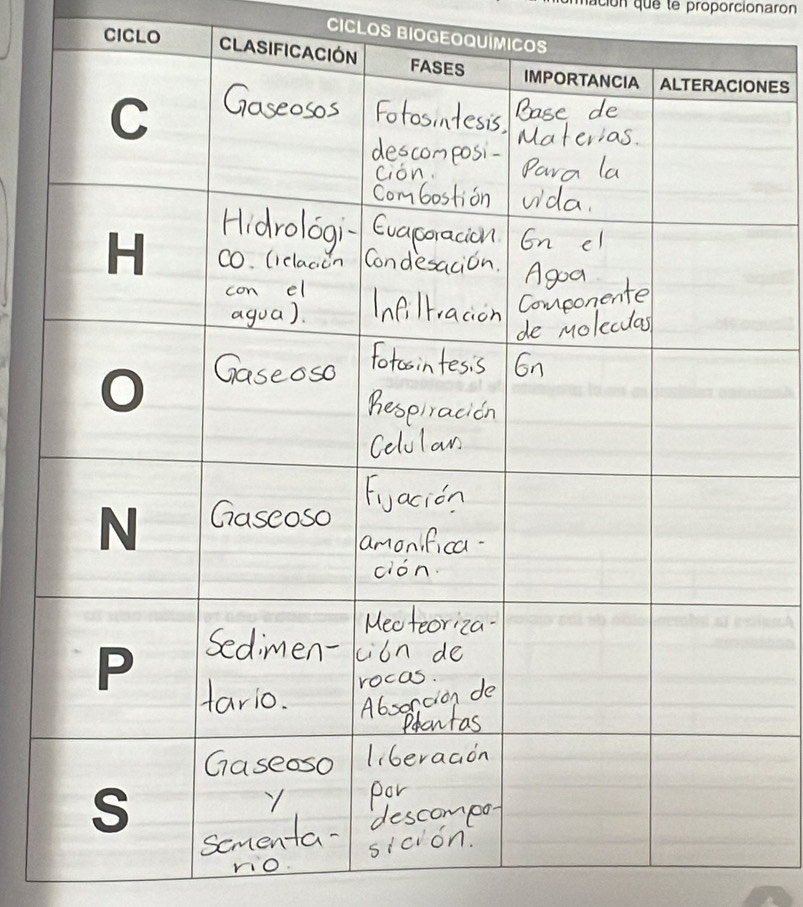 que te proporcionaron
CICLOS BIOGEOQUÍMICOS
CICLO CLASIFICACIÓN FASES IMPORTANCIA ALTERACIONES
C
Gaseosos
Fotosintesis.
descomposi-
ción.
Combostión
Base de
Materias.
Para la
vida.
H
Hidrológi-
co. (relación
con el
agua).
Evaporacion
Condesación.
Infiltracion
En el
Agoa
Componente
de Moleculas
O
Gaseoso
Fotosintesis
Respiración
Celular
En
N
Gaseoso
Fijación
amonifica-
ción.
P
Sedimen-
tario.
Meoteoriza-
ción de
rocas.
Absorcion de
Plantas
S
Gaseoso
y
sementa-
rio.
liberación
por
descompo-
sición.